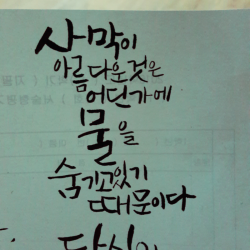 사막이
아름다운것은
어딘가에
물을
숨기고있기
때문이다